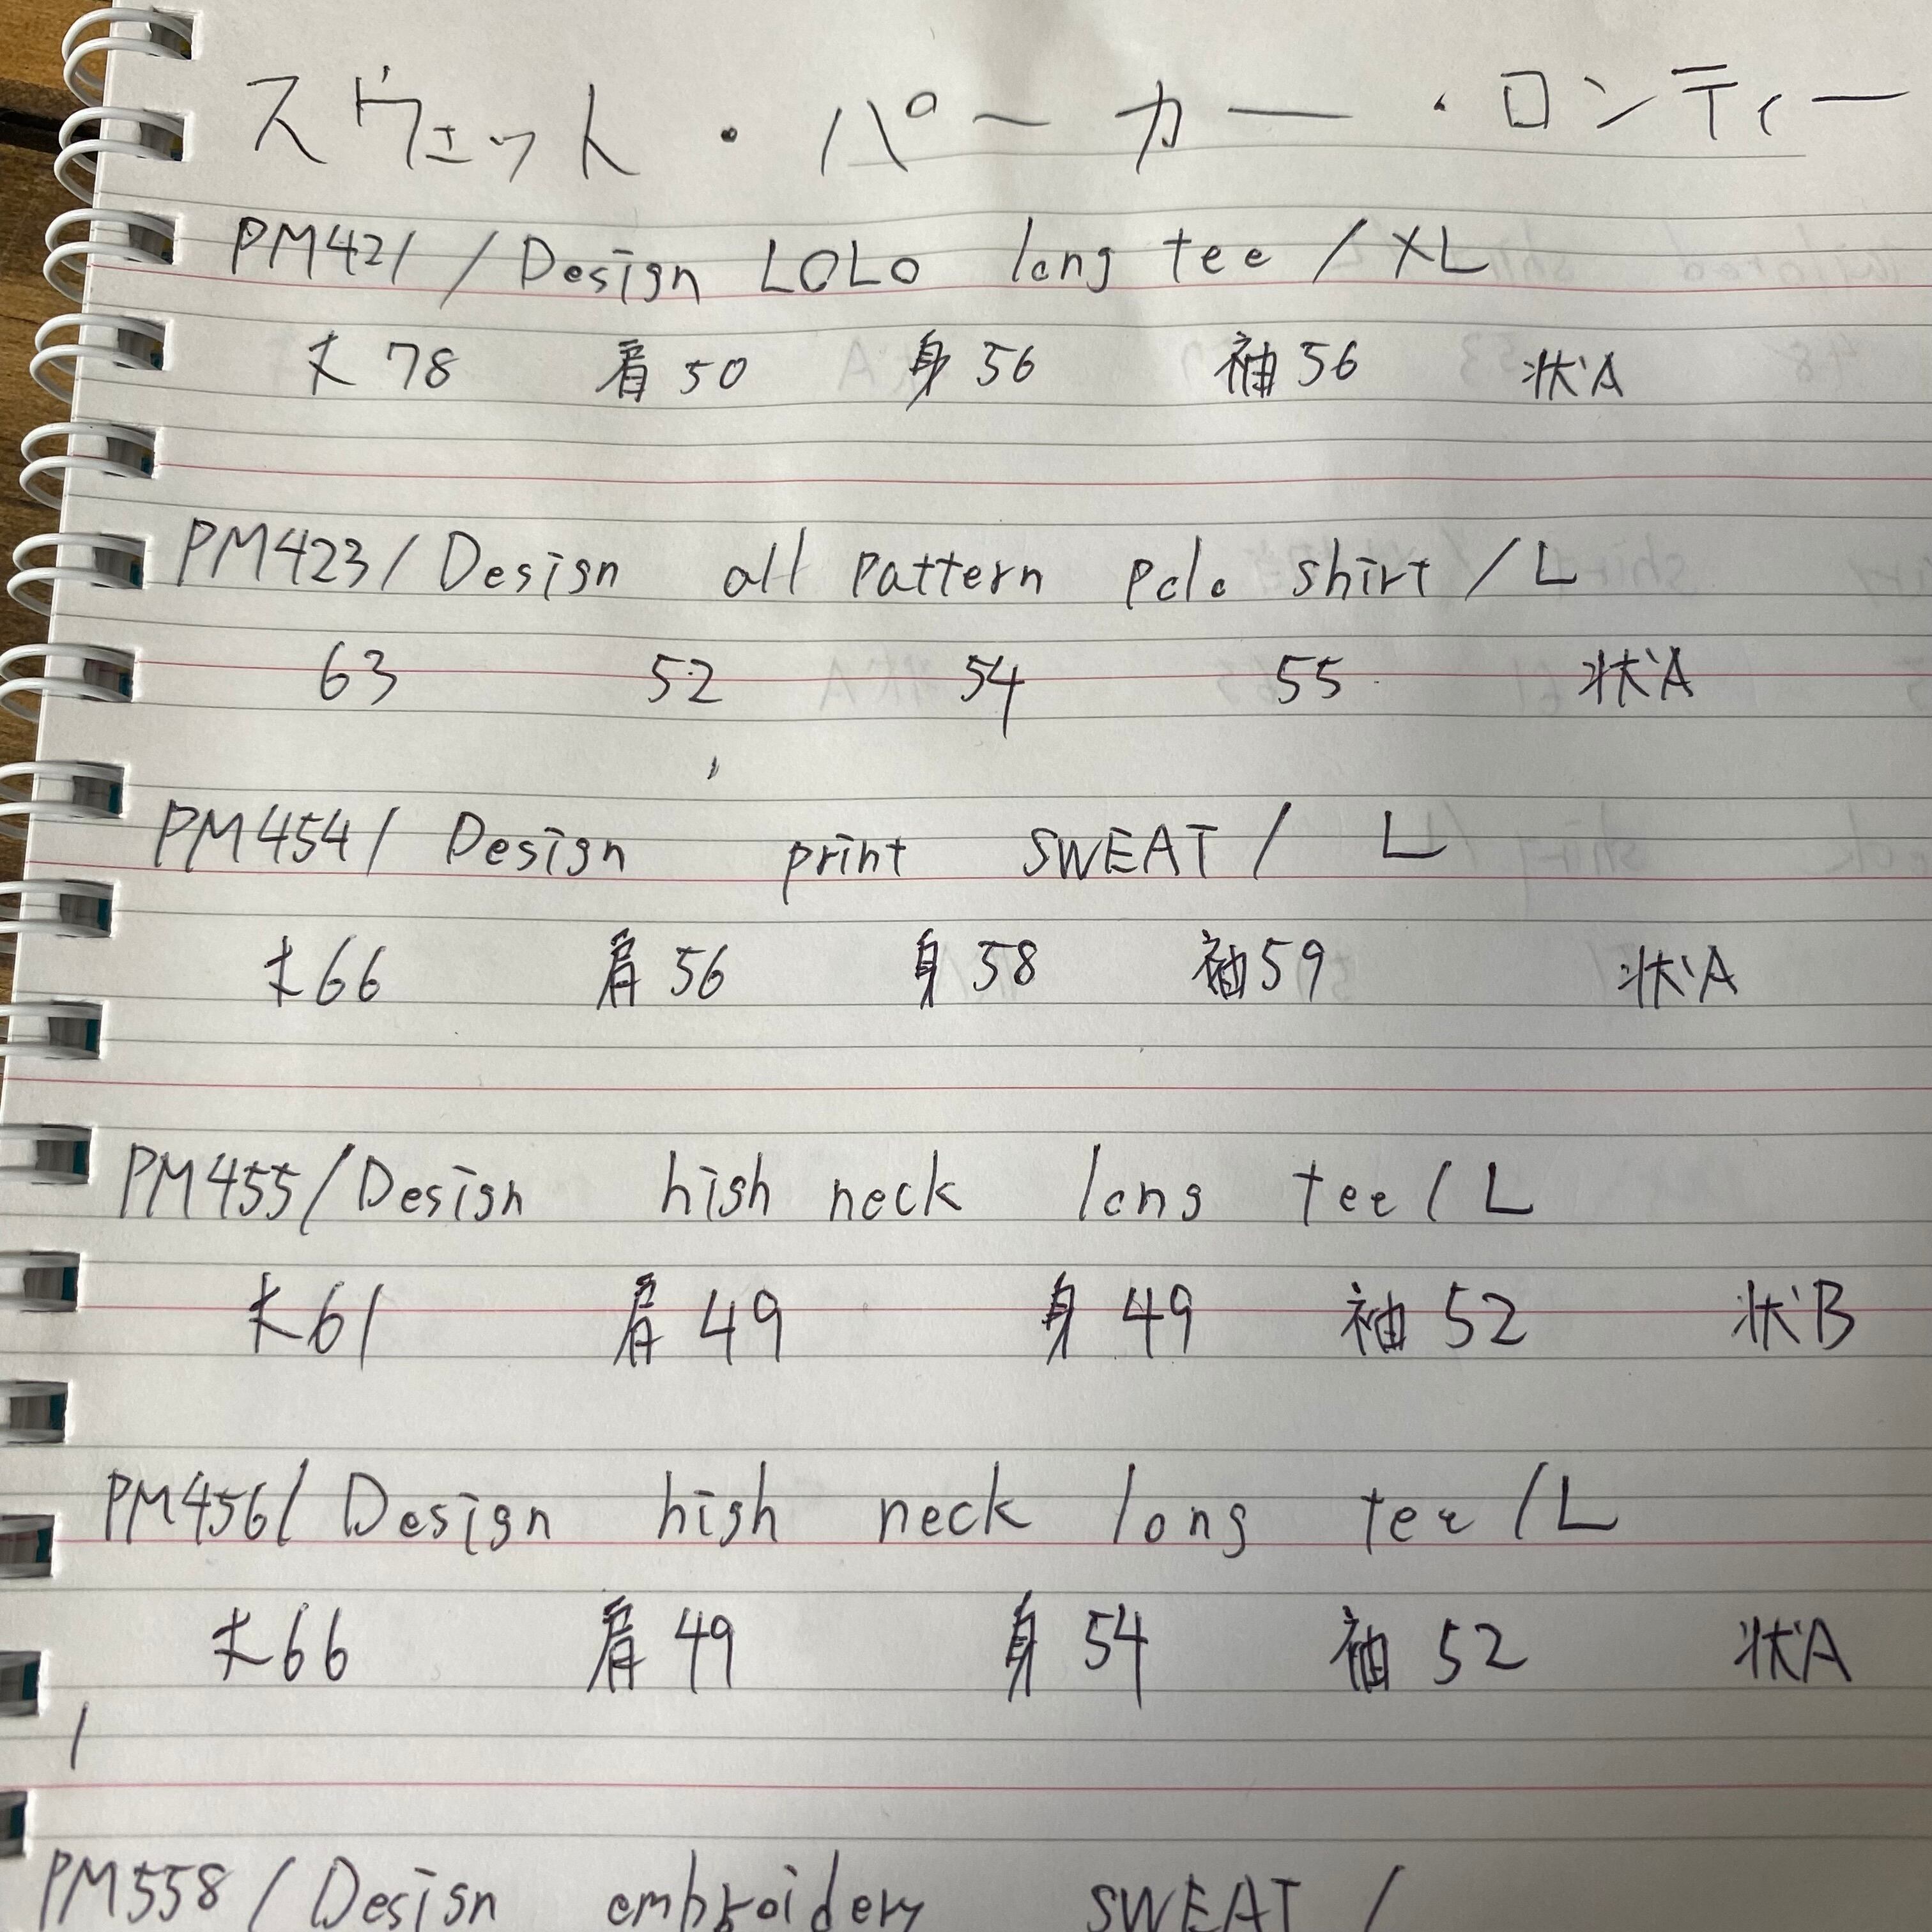 スウェット・パーカー・ロンティー
PM421/Design LOLO long tee/XL
丈78 肩50 身56 袖56 状A
PM423/Design all pattern polo shirt/L
63 52 54 55 状A
PM454/Design print SWEAT/L
丈66 肩56 身58 袖59 状A
PM455/Design high neck long tee/L
丈61 肩49 身49 袖52 状B
PM456/Design high neck long tee/L
丈66 肩49 身54 袖52 状A
PM558/Design embroidery SWEAT/